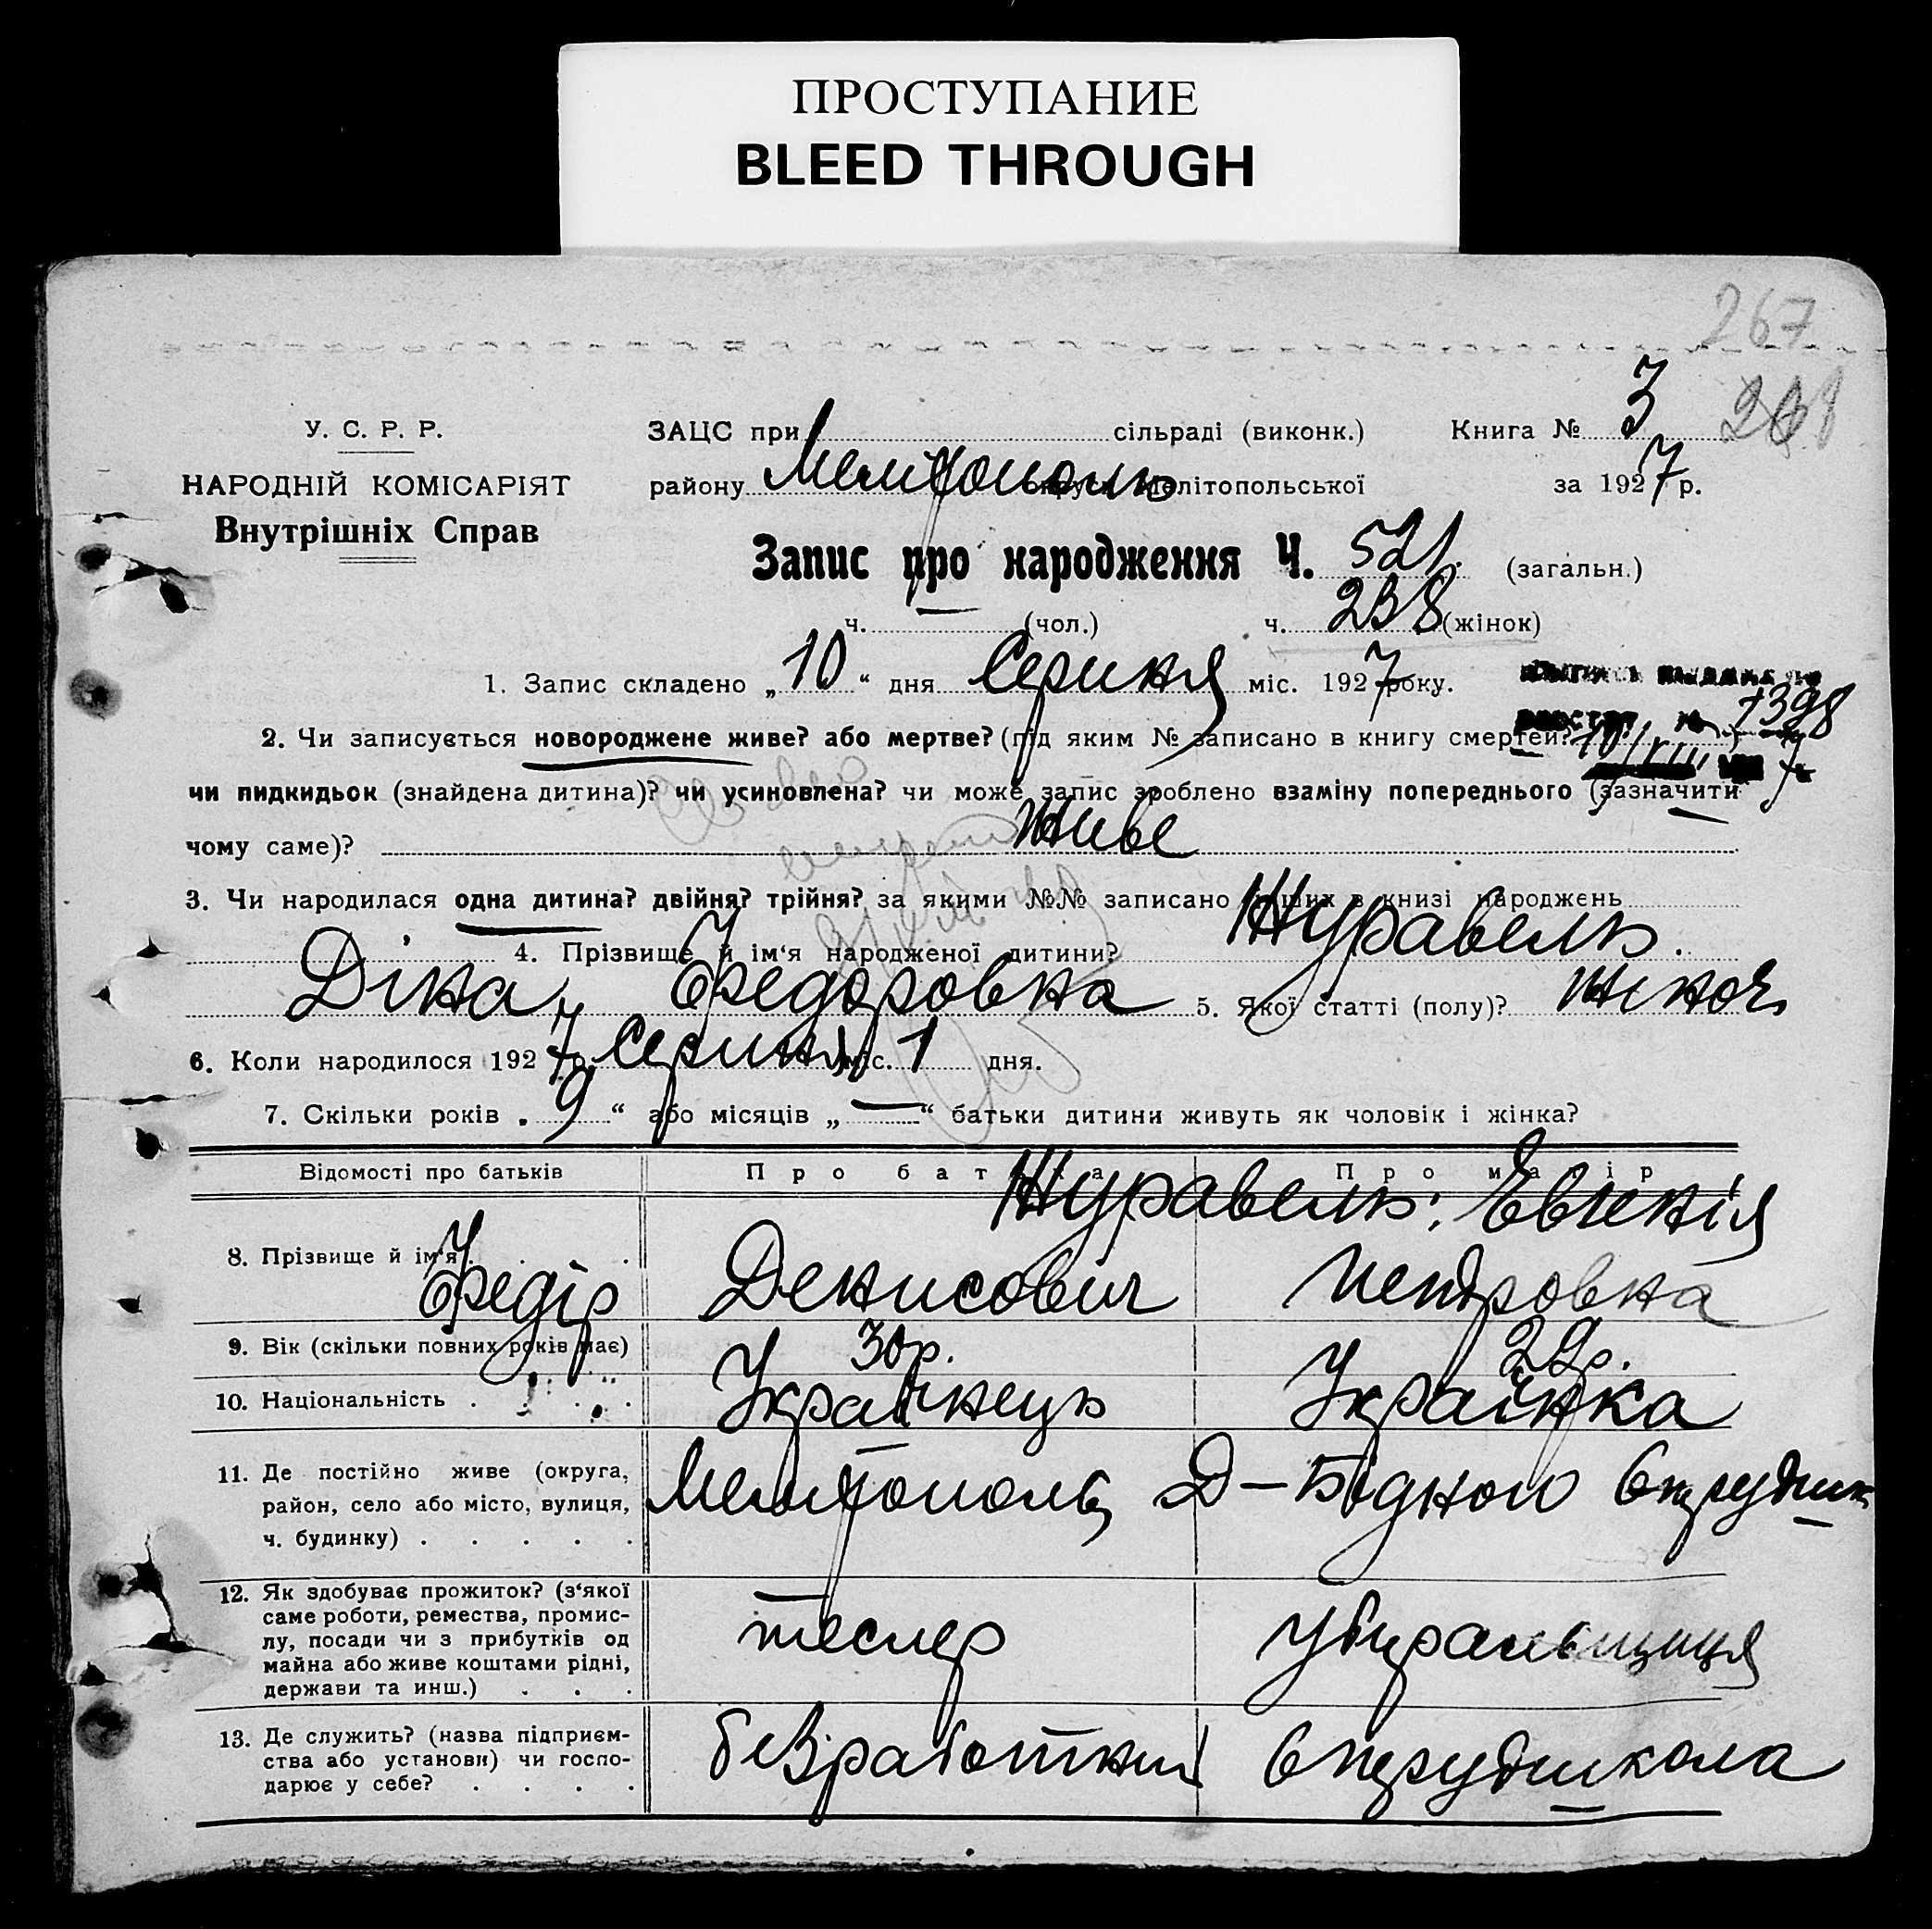 ПРОСТУПАНИЕ
BLEED THROUGH
267
У. С. Р. Р.
НАРОДНІЙ КОМІСАРІЯТ
Внутрішніх Справ
ЗАЦС при сільраді (виконк.) Книга № 3
району Мелітополь округи Мелітопольської за 1927 р.
Запис про народження Ч. 521. (загальн.)
ч. — (чол.) ч. 238 (жінок)
1. Запис складено „10“ дня Серпня міс. 1927 року.
7398
2. Чи записується новороджене живе? або мертве? (під яким № записано в книгу смертей? —)
10/VIII 7
чи пидкидьок (знайдена дитина)? чи усиновлена? чи може запис зроблено взаміну попереднього (зазначити
чому саме)? Живе
3. Чи народилася одна дитина? двійня? трійня? за якими №№ записано инших в книзі народжень
4. Прізвище й ім‘я народженої дитини? Журавель.
Діна Федоровна 5. Якої статті (полу)? жіноч
6. Коли народилося 1927 р. Серпня міс. 1 дня.
7. Скільки років „9“ або місяців „—“ батьки дитини живуть як чоловік і жінка?
Відомості про батьків Про батька Про матір
8. Прізвище й ім‘я Журавель: Євгенія
Федір Денисович Петровна
9. Вік (скільки повних років має) 30 р. 29 р.
10. Національність Українець Українка
11. Де постійно живе (округа,
район, село або місто, вулиця,
ч. будинку)
Мелітополь Д-Бідного
12. Як здобуває прожиток? (з‘якої
саме роботи, ремества, промис-
лу, посади чи з прибутків од
майна або живе коштами рідні,
держави та инш.)
тесляр Убиральщиця
13. Де служить? (назва підприєм-
ства або установи) чи госпо-
дарює у себе?
безработний